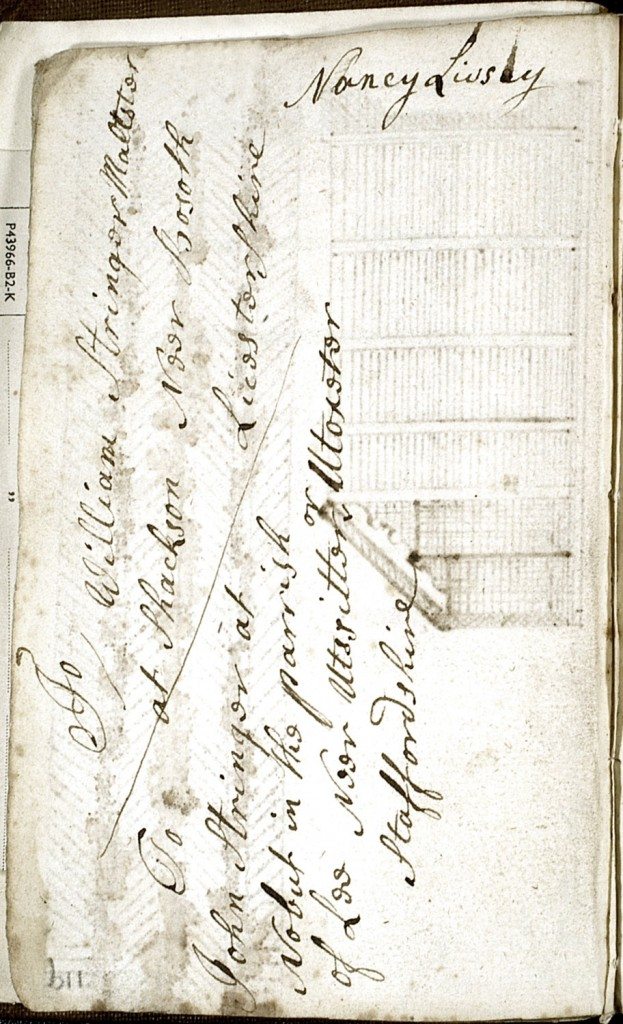 Nancy Livsey
To
William Stringer Maltster
at Shackson Neer Bosoth
Liecstershire
To
John Stringer at
Nobut in the parrish
of Lee Neer Utsxitter or Utoxeter
Staffordshire
P43966-B2-K